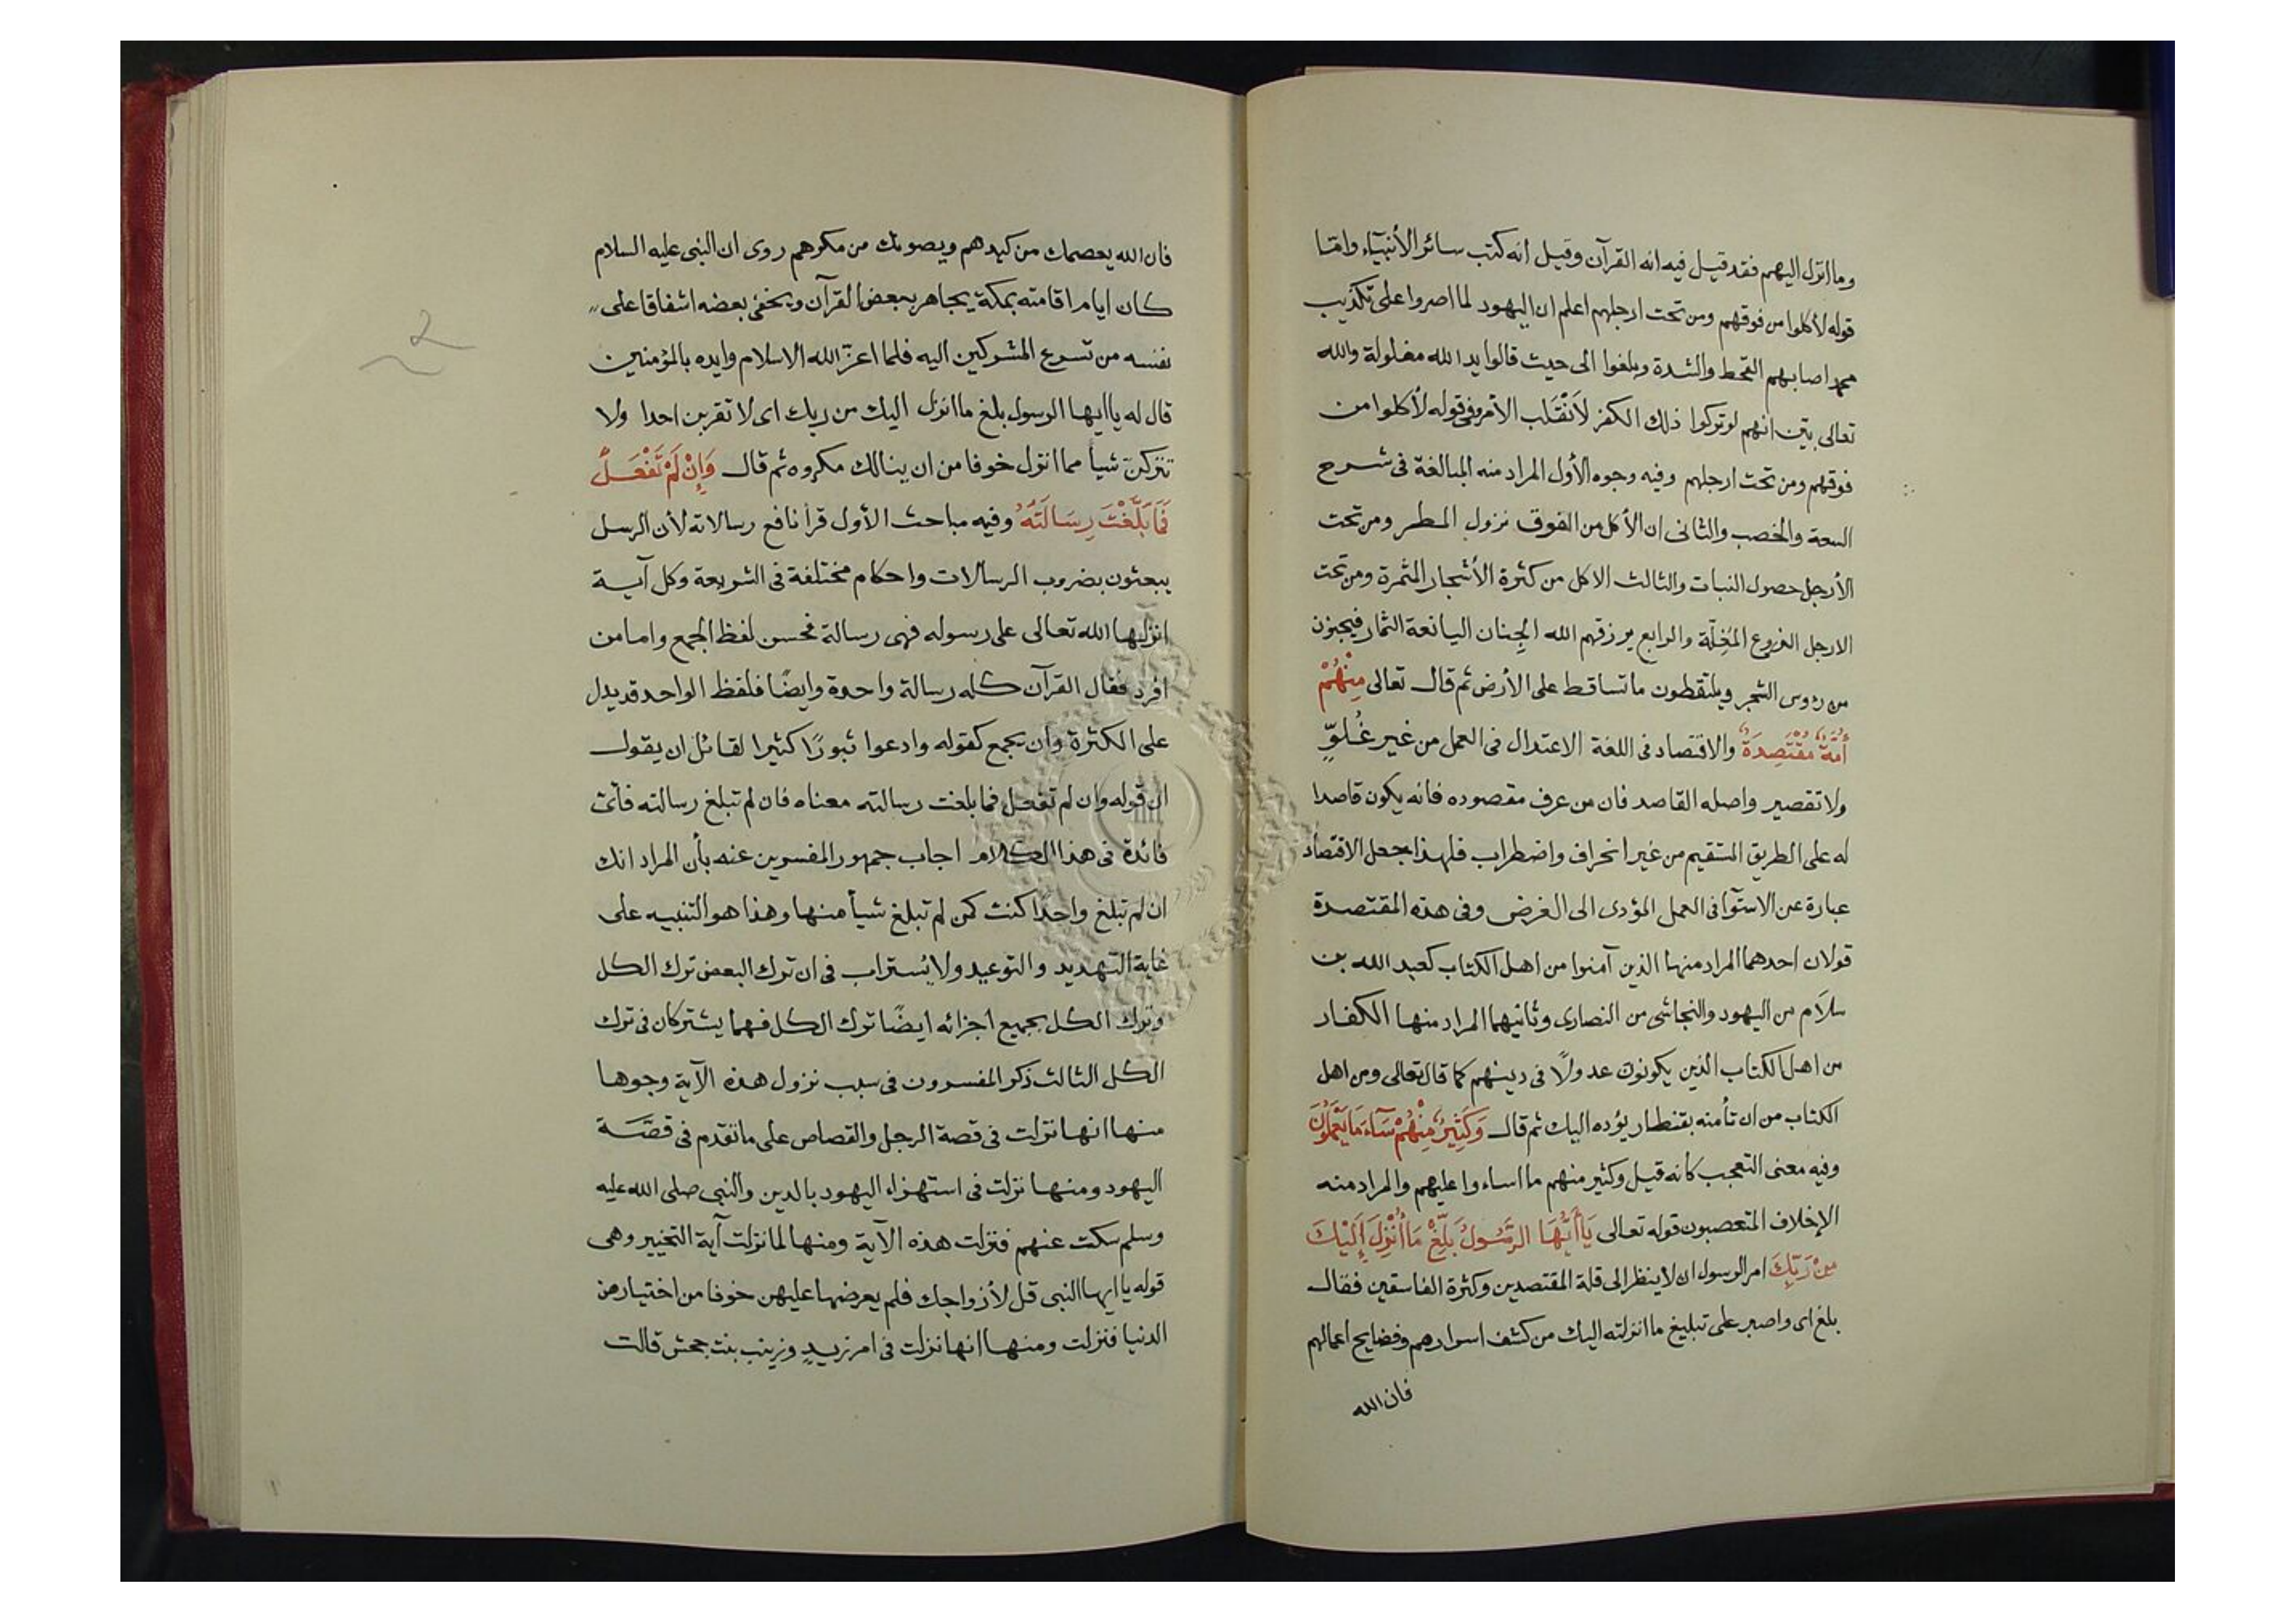 وما انزل اليهم فقد قيل فيه انه القرآن وقيل انه كتب سائر الأنبيآء واما
قوله لأكلوا من فوقهم ومن تحت ارجلهم اعلم ان اليهود لما اصروا على تكذيب
محمد اصابهم القحط والشدة وبلغوا الى حيث قالوا يد الله مغلولة والله
تعالى بيّن انهم لو تركوا ذلك الكفر لَانْقَلب الأمر وفى قوله لأكلوا من
فوقهم ومن تحت ارجلهم وفيه وجوه الأول المراد منه المبالغة فى شرح
السعة والخصب والثانى ان الأكل من الفوق نزول المطر ومن تحت
الأرجل حصول النبات والثالث الاكل من كثرة الأشجار المثمرة ومن تحت
الارجل الفروع المُغِلّة والرابع يرزقهم الله الجِنان اليانعة الثمار فيجنون
من رؤس الشجر ويلتقطون ما تساقط على الأرض ثم قال تعالى مِنْهُمْ
أُمَّةٌ مُقْتَصِدَةٌ والاقتصاد فى اللغة الاعتدال فى العمل من غير غُلوٍّ
ولا تقصير واصله القاصد فان من عرف مقصوده فانه يكون قاصدا
له على الطريق المستقيم من غير انحراف واضطراب فلهذا جعل الاقتصاد
عبارة عن الاستوآ فى العمل المؤدى الى الغرض وفى هذه المقتصدة
قولان احدهما المراد منها الذين آمنوا من اهل الكتاب كعبد الله بن
سلَام من اليهود والنجاشى من النصارى وثانيهما المراد منها الكفار
من اهل الكتاب الذين يكونون عدولًا فى دينهم كما قال تعالى ومن اهل
الكتاب من ان تأمنه بقنطار يؤده اليك ثم قال وَكَثِيرٌ مِنْهُمْ سَآءَ مَا يَعْمَلُونَ
وفيه معنى التعجب كانه قيل وكثير منهم ما اساءوا عليهم والمراد منه
الإخلاف المتعصبون قوله تعالى يَاأَيُّهَا الرَّسُولُ بَلِّغْ مَا أُنْزِلَ إِلَيْكَ
مِنْ رَبِّكَ امر الرسول ان لا ينظر الى قلة المقتصدين وكثرة الفاسقين فقال
بلغ اى واصبر على تبليغ ما انزلته اليك من كشف اسرارهم وفضايح اعمالهم
فان الله
فان الله يعصمك من كيدهم ويصونك من مكرهم روى ان النبى عليه السلام
كان ايام اقامته بمكة يجاهر ببعض القرآن ويخفى بعضه اشفاقا على
نفسه من تسرع المشركين اليه فلما اعزّ الله الاسلام وايده بالمؤمنين
قال له ياايها الرسول بلغ ما انزل اليك من ربك اى لا تقربن احدا ولا
تتركنّ شيأ مما انزل خوفا من ان ينالك مكروه ثم قال وَإِنْ لَمْ تَفْعَلْ
فَمَا بَلَّغْتَ رِسَالَتَهُ وفيه مباحث الأول قرأ نافع رسالاته لأن الرسل
يبعثون بضروب الرسالات واحكام مختلفة فى الشريعة وكل آية
انزلها الله تعالى على رسوله فهى رسالة فحسن لفظ الجمع واما من
افرد فقال القرآن كله رسالة واحدة وايضًا فلفظ الواحد قد يدل
على الكثرة وان يجمع كقوله وادعوا ثبورًا كثيرا لقائل ان يقول
ان قوله وان لم تفعل فما بلغت رسالته معناه فان لم تبلغ رسالته فأىّ
فائدة فى هذا الكلام اجاب جمهور المفسرين عنه بأن المراد انك
ان لم تبلغ واحدًا كنت كمن لم تبلغ شيأ منها وهذا هو التنبيه على
غاية التهديد والتوعيد ولا يُستراب فى ان ترك البعض ترك الكل
وترك الكل بجميع اجزائه ايضًا ترك الكل فهما يشتركان فى ترك
الكل الثالث ذكر المفسرون فى سبب نزول هذه الآية وجوها
منها انها نزلت فى قصة الرجل والقصاص على ما تقدم فى قصّة
اليهود ومنها نزلت فى استهزاء اليهود بالدين والنبى صلى الله عليه
وسلم سكت عنهم فنزلت هذه الآية ومنها لما نزلت آية التخيير وهى
قوله يا ايها النبى قل لأزواجك فلم يعرضها عليهن خوفا من اختيارهن
الدنيا فنزلت ومنها انها نزلت فى امر زيدٍ وزينب بنت جحش قالت